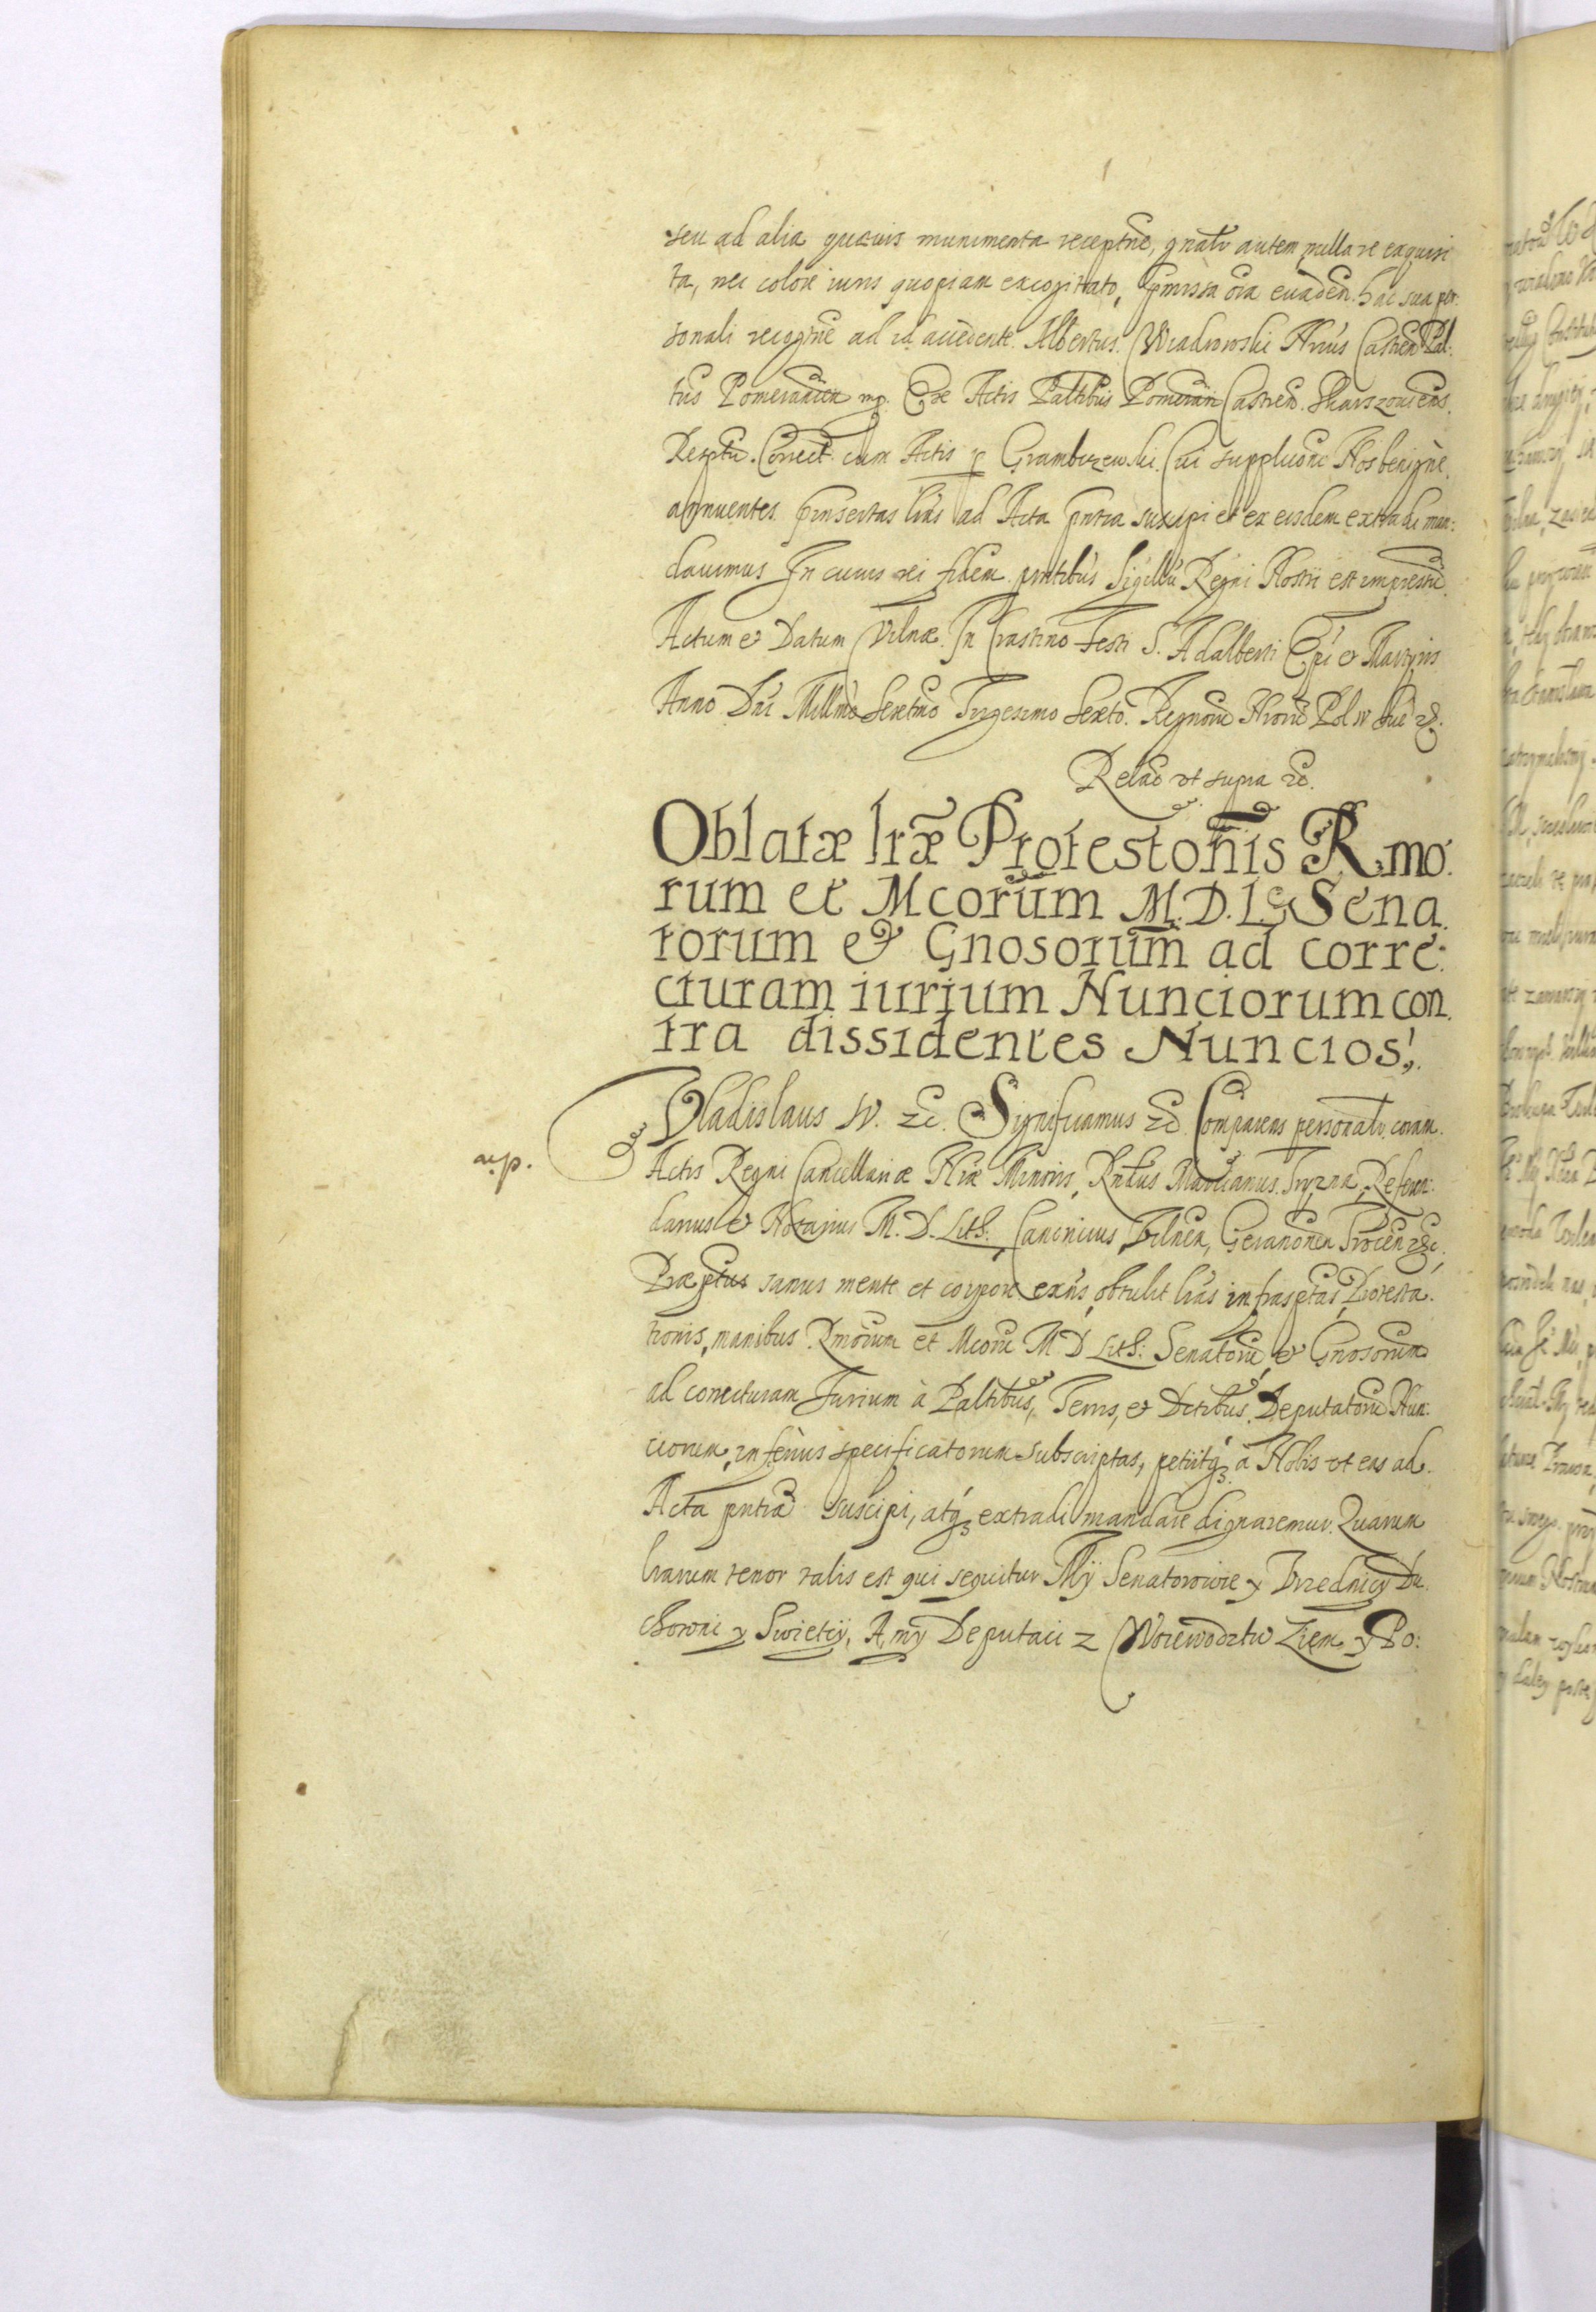 seu ad alia quævis munimenta receptne, gnalr autem nulla re exquisi
ta, nec colore iuris quopiam excogitato, pmissa oia evaden. hac sua per:
sonali recogne ad id accedente. Albertus Wiadrowski Nrius Castren Pal:
tus Pomeranien mp. Ex Actis Paltibus Pomeran Castren. Skarszoviens.
Resptu. Correct. cum Actis p Gramburewski. Cui supplicaoni Nos benigne
annuentes pinsertas lras ad Acta pntia suscipi et ex eisdem extradi man:
davimus In cuius rei fidem pntibus Sigillu Regni Nostri est impressu.
Actum et Datum Vilnæ. In Crastino Festi S. Adalberti Epi et Martyris
Anno Dni Millmo Sextmo Trigesimo Sexto. Regnoru Nroru Pol IV Sue &c.
Relaō vt supra &c.
Oblatæ lræ Protestonis R.mo:
rum et Mcorum M.D.L. Sena
torum & Gnosorum ad corre:
cturam iurium Nunciorum con
tra dissidentes Nuncios.
Vladislaus IV. &c. Significamus &c. Comparens personalr. coram
a.p.
Actis Regni Cancellariæ Nræ Minoris, Rndus Marcianus Tryzna, Referen:
darius et Notarius M. D. Lith: Canonicus Vilnen, Geranonen Trocen &c.
Præptus sanus mente et corpore exns, obtulit lras infrasptas Protesta:
tionis, manibus Rmorum et Mcoru M D Lith: Senatoru et Gnosorum
ad correcturam Iurium à Paltibus, Terris, et Dctibus Deputatoru Nun:
ciorum, inferius specificatorum subscriptas, petiitq3 à Nobis vt eas ad
Acta pntia suscipi, atq3 extradi mandare dignaremur. Quarum
lrarum tenor talis est qui sequitur My Senatorowie y Vrzednicy Du
chowni y Swietcy, A my Deputaci z Woiewodztw Ziem y Po: